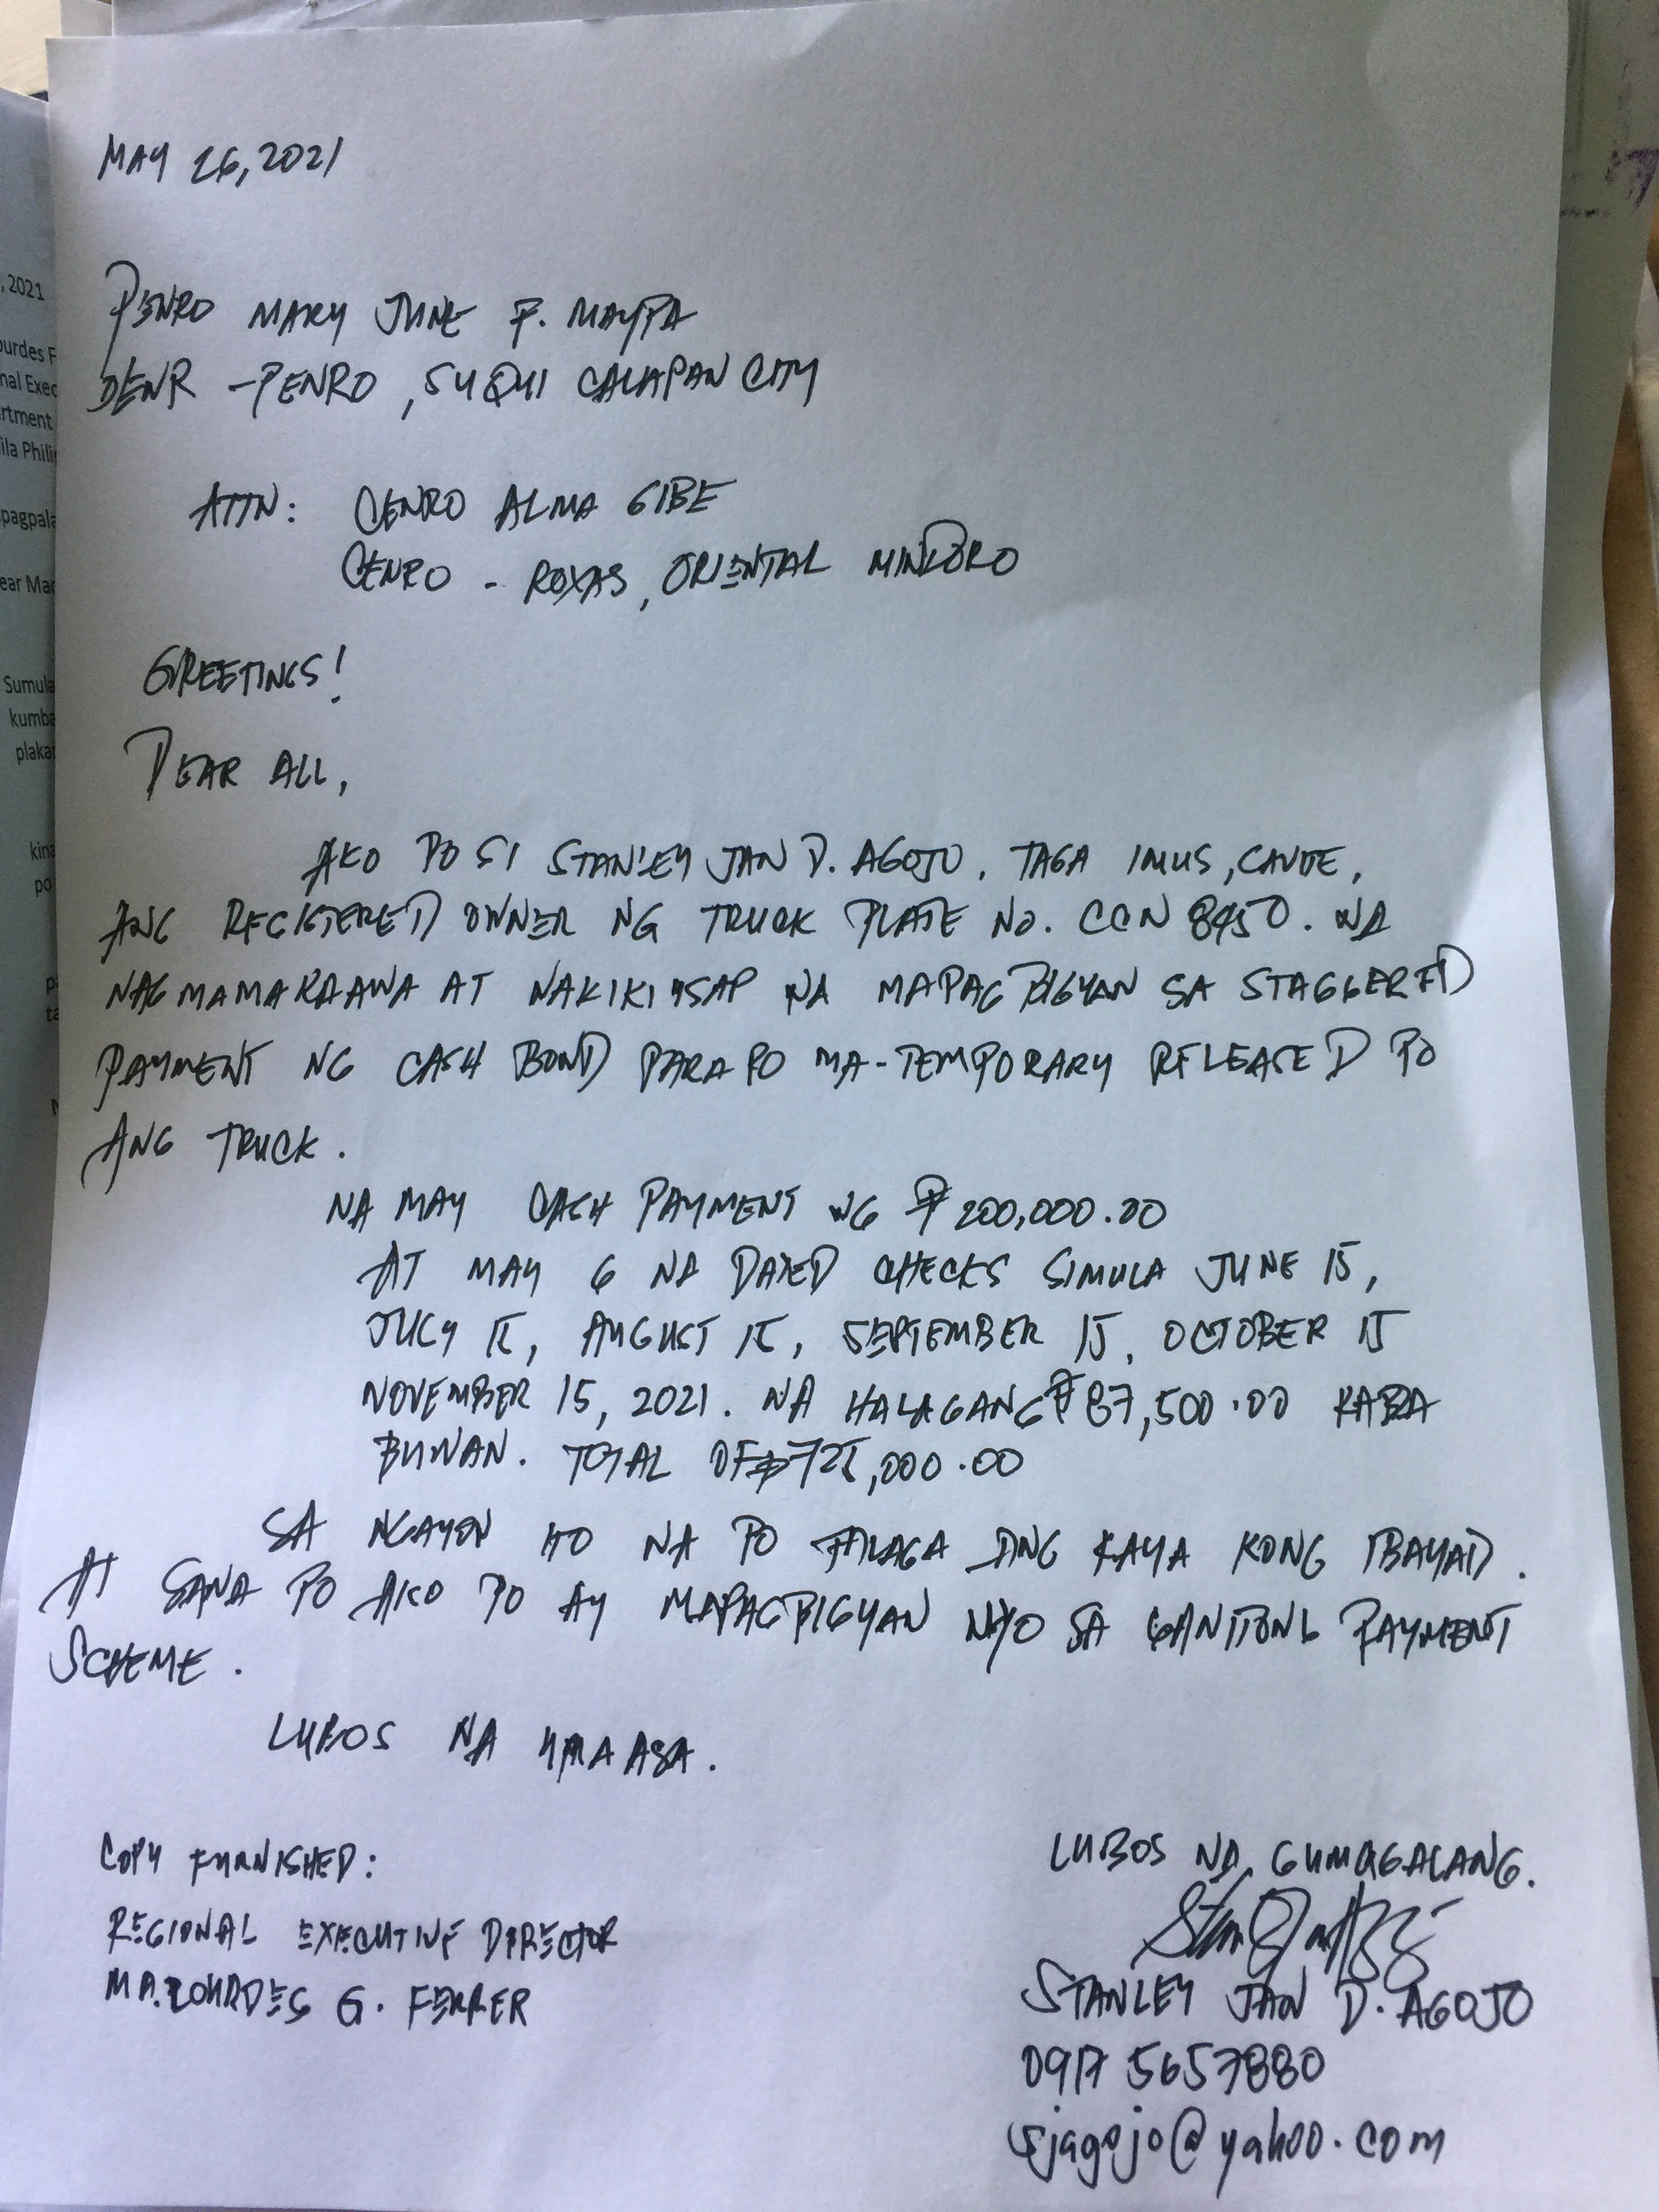 MAY 26, 2021
PENRO MARY JUNE F. MAYPA
DENR - PENRO, SUQUI CALAPAN CITY
ATTN: CENRO ALMA GIBE
CENRO - ROXAS, ORIENTAL MINDORO
GREETINGS!
DEAR ALL,
AKO PO SI STANLEY JAN D. AGOJO, TAGA IMUS, CAVITE,
ANG REGISTERED OWNER NG TRUCK PLATE NO. CCN 8450. NA
NAGMAMAKAAWA AT NAKIKIUSAP NA MAPAGBIGYAN SA STAGGERED
PAYMENT NG CASH BOND PARA PO MA-TEMPORARY RELEASED PO
ANG TRUCK.
NA MAY CASH PAYMENT NG ₱200,000.00
AT MAY 6 NA DATED CHECKS SIMULA JUNE 15,
JULY 15, AUGUST 15, SEPTEMBER 15, OCTOBER 15
NOVEMBER 15, 2021. NA HALAGANG ₱87,500.00 KADA
BUWAN. TOTAL OF ₱725,000.00
SA NGAYON ITO NA PO TALAGA ANG KAYA KONG IBAYAD.
AT SANA PO AKO PO AY MAPAGBIGYAN NYO SA GANITONG PAYMENT
SCHEME.
LUBOS NA UMAASA.
COPY FURNISHED:
REGIONAL EXECUTIVE DIRECTOR
MA. LOURDES G. FERRER
LUBOS NA GUMAGALANG.
STANLEY JAN D. AGOJO
0917 5657880
sjagojo@yahoo.com
, 2021
ourdes F
nal Exec
rtment
ila Phili
pagpala
ear Mar
Sumula
kumba
plaka
kina
po